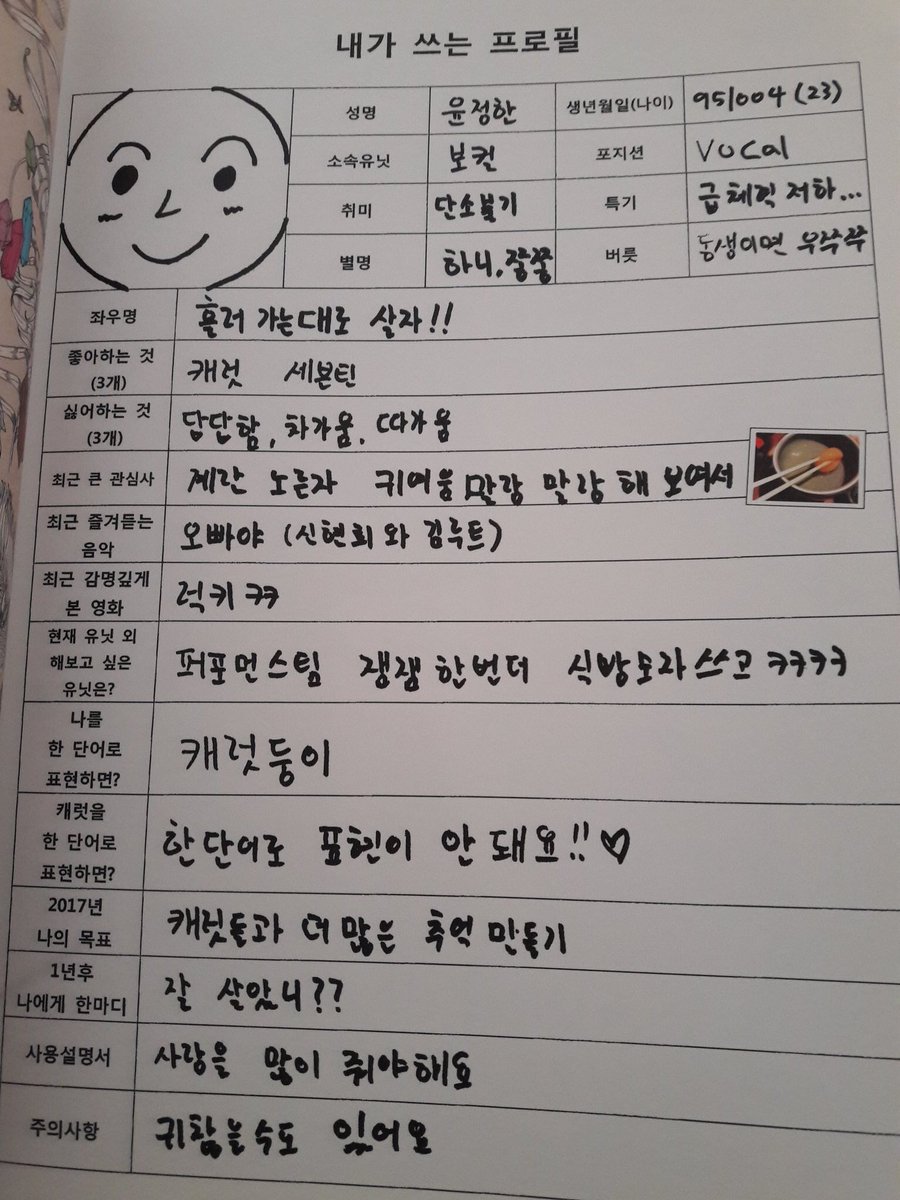 내가 쓰는 프로필
성명 윤정한 생년월일(나이) 951004 (23)
소속유닛 보컬 포지션 Vocal
취미 단소불기 특기 급체력 저하...
별명 하니, 쭝쭝 버릇 동생이면 우쭈쭈
좌우명 흘러 가는대로 살자!!
좋아하는 것 (3개) 캐럿 세븐틴
싫어하는 것 (3개) 답답함, 차가움, 따가움
최근 큰 관심사 계란 노른자 귀여움 말랑 말랑 해 보여서
최근 즐겨듣는 음악 오빠야 (신현희와 김루트)
최근 감명깊게 본 영화 럭키 ㅋㅋ
현재 유닛 외 해보고 싶은 유닛은? 퍼포먼스팀 쟨쟨 한번더 식빵모자쓰고 ㅋㅋㅋㅋ
나를 한 단어로 표현하면? 캐럿둥이
캐럿을 한 단어로 표현하면? 한단어로 표현이 안 돼요!! ♡
2017년 나의 목표 캐럿들과 더 많은 추억 만들기
1년후 나에게 한마디 잘 살았니??
사용설명서 사랑을 많이 줘야해요
주의사항 귀찮을수도 있어요